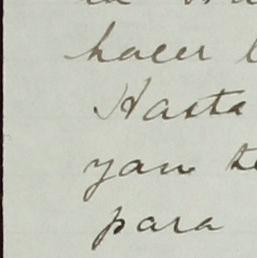 hacer
Hasta
yan te
para